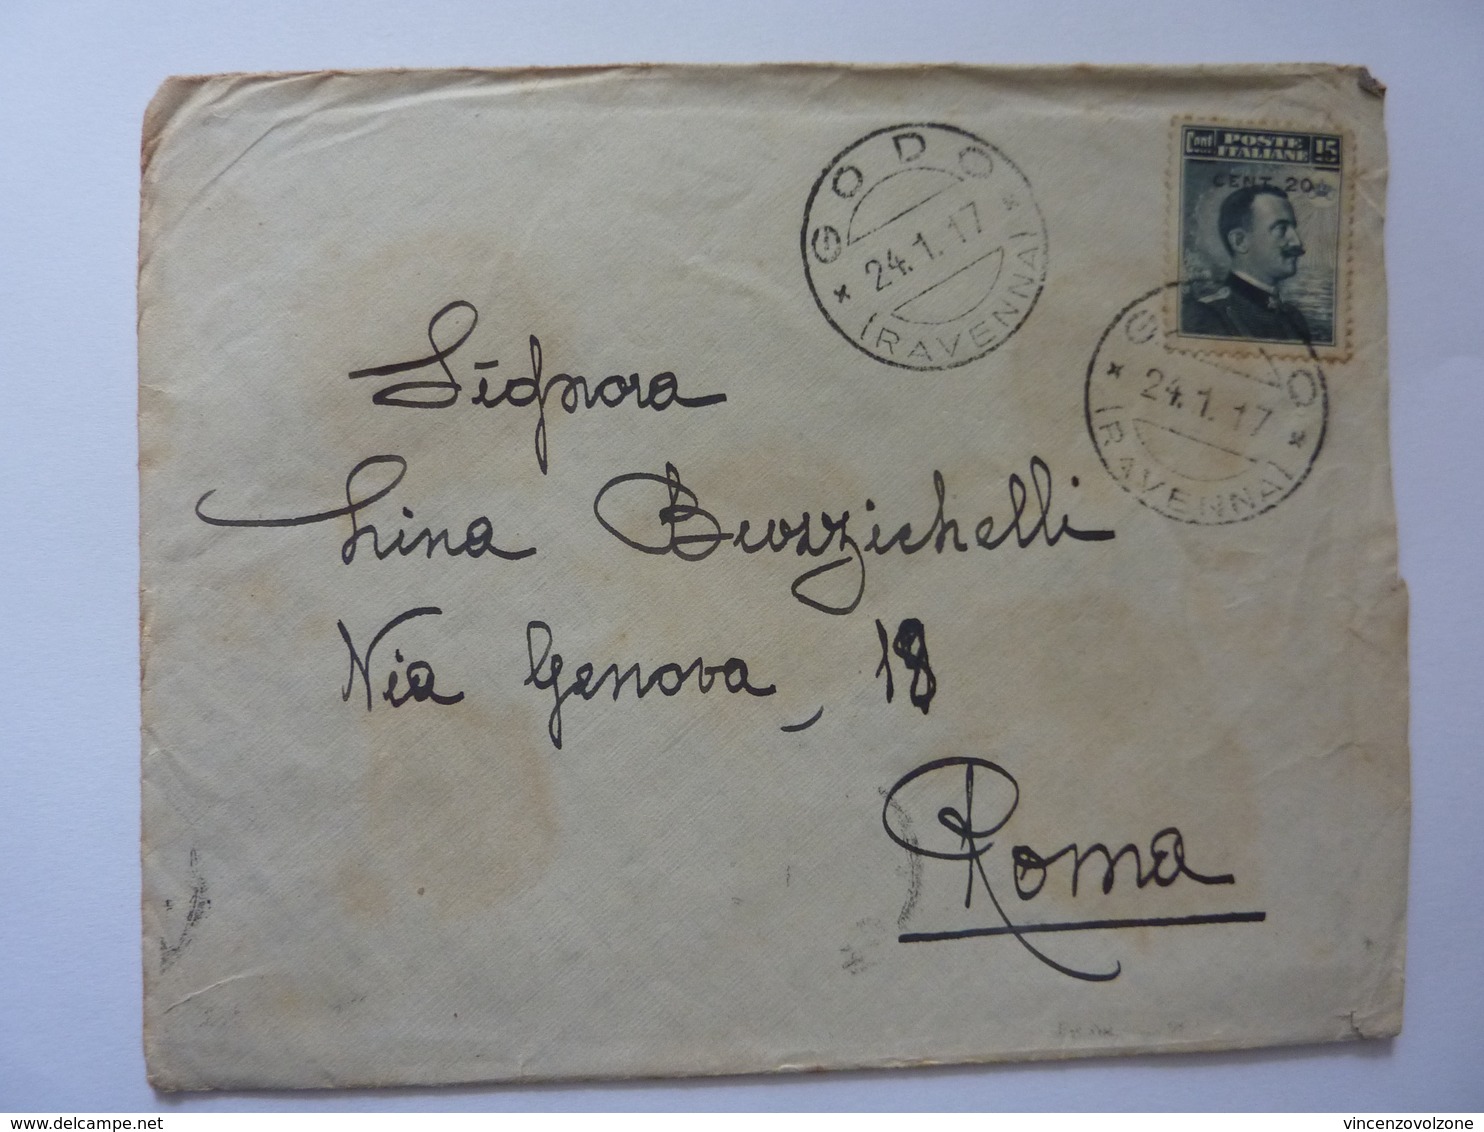 GODO
24.1.17
(RAVENNA)
Cent POSTE ITALIANE 15
CENT. 20
24.1.17
(RAVENNA)
Signora
Lina Buzzichelli
Via Genova, 18
Roma
www.delcampe.net
vincenzovolzone